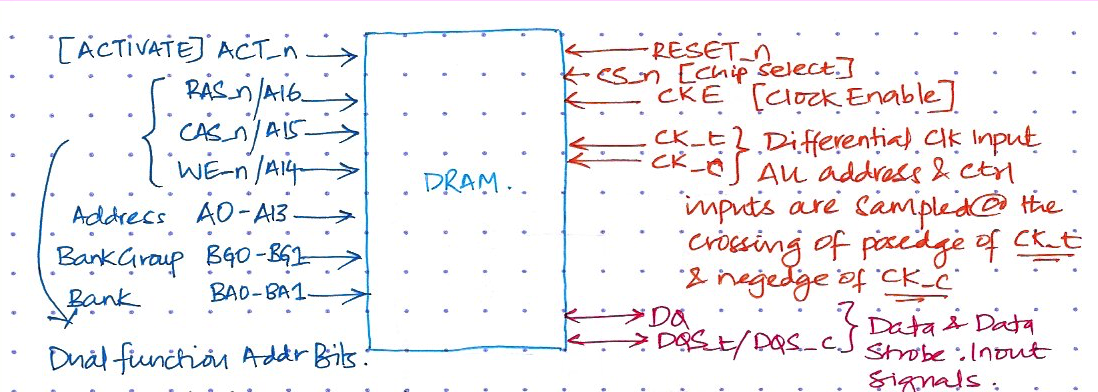 [ACTIVATE] ACT_n
RAS_n/A16
CAS_n/A15
WE_n/A14
Address A0-A13
BankGroup BG0-BG1
Bank BA0-BA1
Dual function Addr Bits.
DRAM.
RESET_n
CS_n [Chip Select]
CKE [Clock Enable]
CK_t } Differential Clk Input
CK_c } All address & ctrl
inputs are sampled @ the
crossing of posedge of CK_t
& negedge of CK_c
DQ
DQS_t/DQS_c
Data & Data
Strobe : Inout
signals.